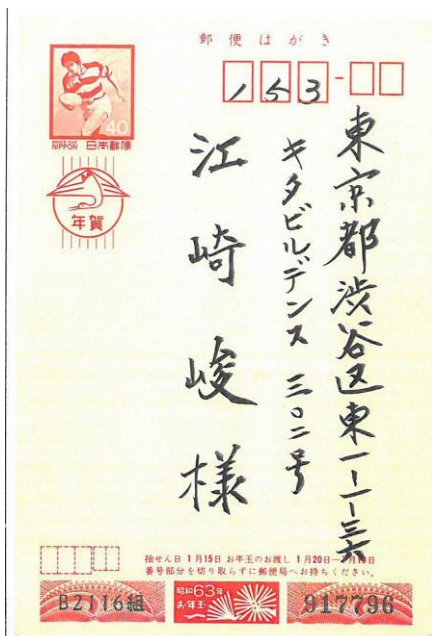 郵便はがき
153-
40
日本郵便
年賀
東京都渋谷区東一-一-三六
キタビルデンス 三〇二号
江崎峻様
抽せん日 1月15日 お年玉のお渡し 1月20日―7月19日
番号部分を切り取らずに郵便局へお持ちください。
B2116組
昭和63年
お年玉
917796